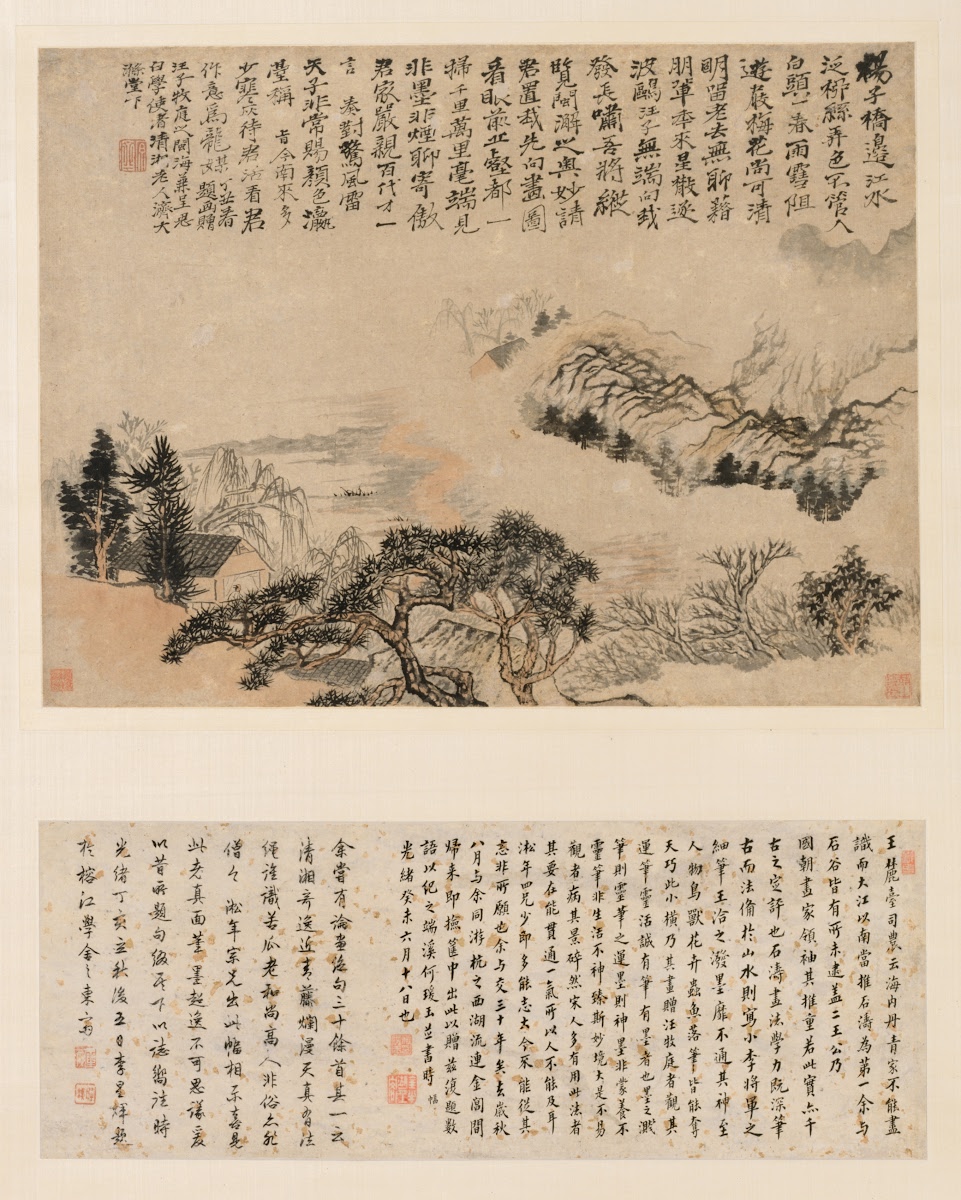 楊子橋邊江水
泛柳絲弄色不管人
白頭一春雨雪阻
遊展梅花尚可清
明留老去無聊藉
朋輩季來星散逐
波鷗汪子無端向我
發長嘯吾將縱
覽閩海以奧妙請
君置我先向畫圖
看眼前丘壑都一
掃千里萬里毫端見
非墨非煙聊寄傲
君家嚴親百代才一
言奏對驚風雷
天子非常賜顏色瀛
臺稱旨今南來多
少寒灰待君活看君
作意為龍媒
汪子牧庭之閩海兼呈思
白學使者清湘老人濟大
滌堂下
王麓臺司農云海內丹青家不能盡
識而大江以南當推石濤為第一余與
石谷皆有所未逮蓋二王公乃
國朝畫家領袖其推重若此實六千
古之定評也石濤畫法學力既深筆
古而法備於山水則寫小李將軍之
細筆王洽之潑墨靡不通其神至
人物鳥獸花卉蟲魚落筆皆能奪
天巧此小橫乃其畫贈汪牧庭者觀其
運筆靈活誠有筆有墨者也墨之濺
筆則靈筆之運墨則神墨非蒙養不
靈筆非生活不神臻斯妙境大是不易
觀者病其景碎然宋人多有用此法者
其要在能貫通一氣所以人不能及耳
淞年四兄少即多能志大今來能從其
志非所願也余与交三十年矣去歲秋
八月与余同游杭之西湖流連金閶間
歸來即撿篋中出此以贈茲復題數
語以紀之端溪何瑗玉並書時
光緒癸未六月十八日也
余嘗有論畫絕句三十餘首其一云
清湘奇逸近青藤爛漫天真為法
繩誰識苦瓜老和尚高人非俗亦非
僧今淞年宗兄出此幅相示喜見
此老真面筆墨超逸不可思議爰
以昔所題句綴于下以誌嚮注時
光緒丁亥立秋後五日李星輝題
於榕江學舍之東齋